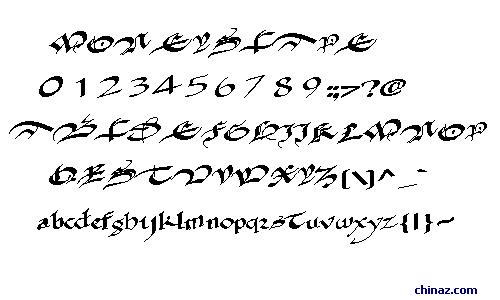 MONEYSCTPE
0123456789:;>?@
ABCDEFGHIJKLMNOP
QRSTUVWXYZ[\]^_`
abcdefghijklmnopqrstuvwxyz{|}~
chinaz.com